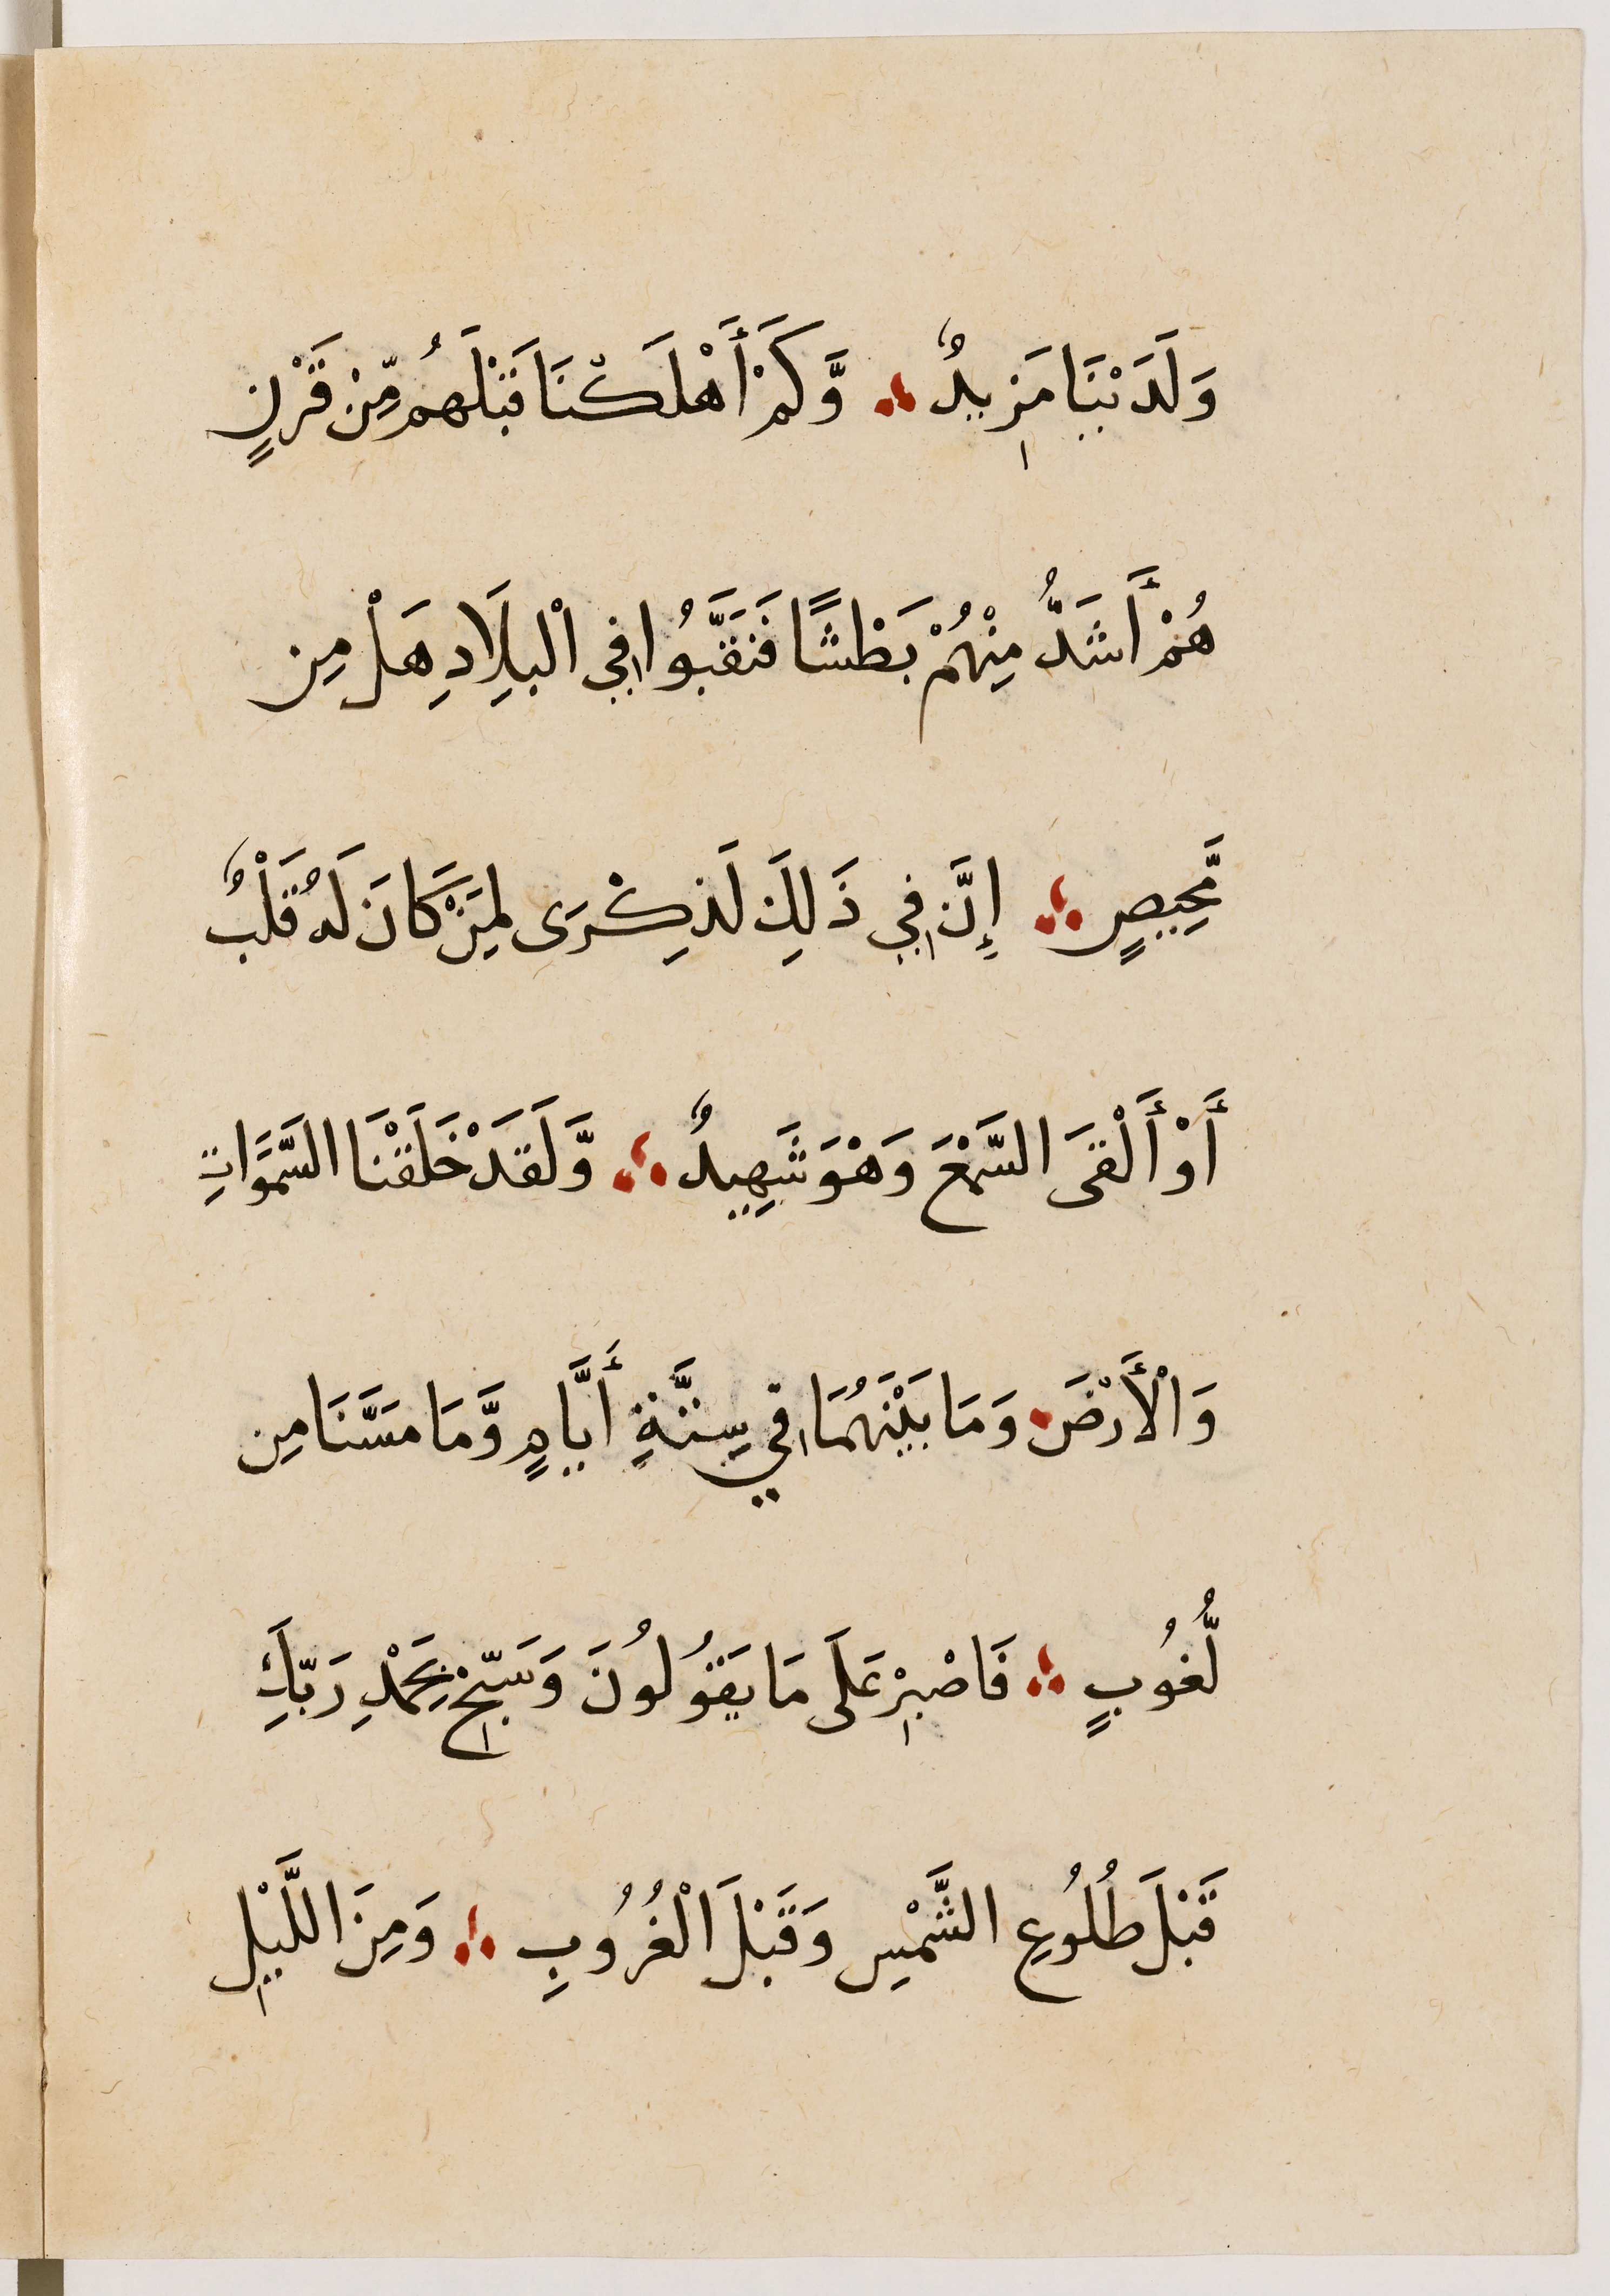 وَلَدَيْنَا مَزِيدٌ ؞ وَّكَمْ أَهْلَكْنَا قَبْلَهُم مِّنْ قَرْنٍ
هُمْ أَشَدُّ مِنْهُمْ بَطْشًا فَنَقَّبُوا فِي الْبِلَادِ هَلْ مِن
مَّحِيصٍ ؞ إِنَّ فِي ذَلِكَ لَذِكْرَى لِمَنْ كَانَ لَهُ قَلْبٌ
أَوْ أَلْقَى السَّمْعَ وَهْوَ شَهِيدٌ ؞ وَّلَقَدْ خَلَقْنَا السَّمَوَاتِ
وَالْأَرْضَ وَمَا بَيْنَهُمَا فِي سِتَّةِ أَيَّامٍ وَّمَا مَسَّنَا مِن
لُّغُوبٍ ؞ فَاصْبِرْ عَلَى مَا يَقُولُونَ وَسَبِّحْ بِحَمْدِ رَبِّكَ
قَبْلَ طُلُوعِ الشَّمْسِ وَقَبْلَ الْغُرُوبِ ؞ وَمِنَ اللَّيْلِ